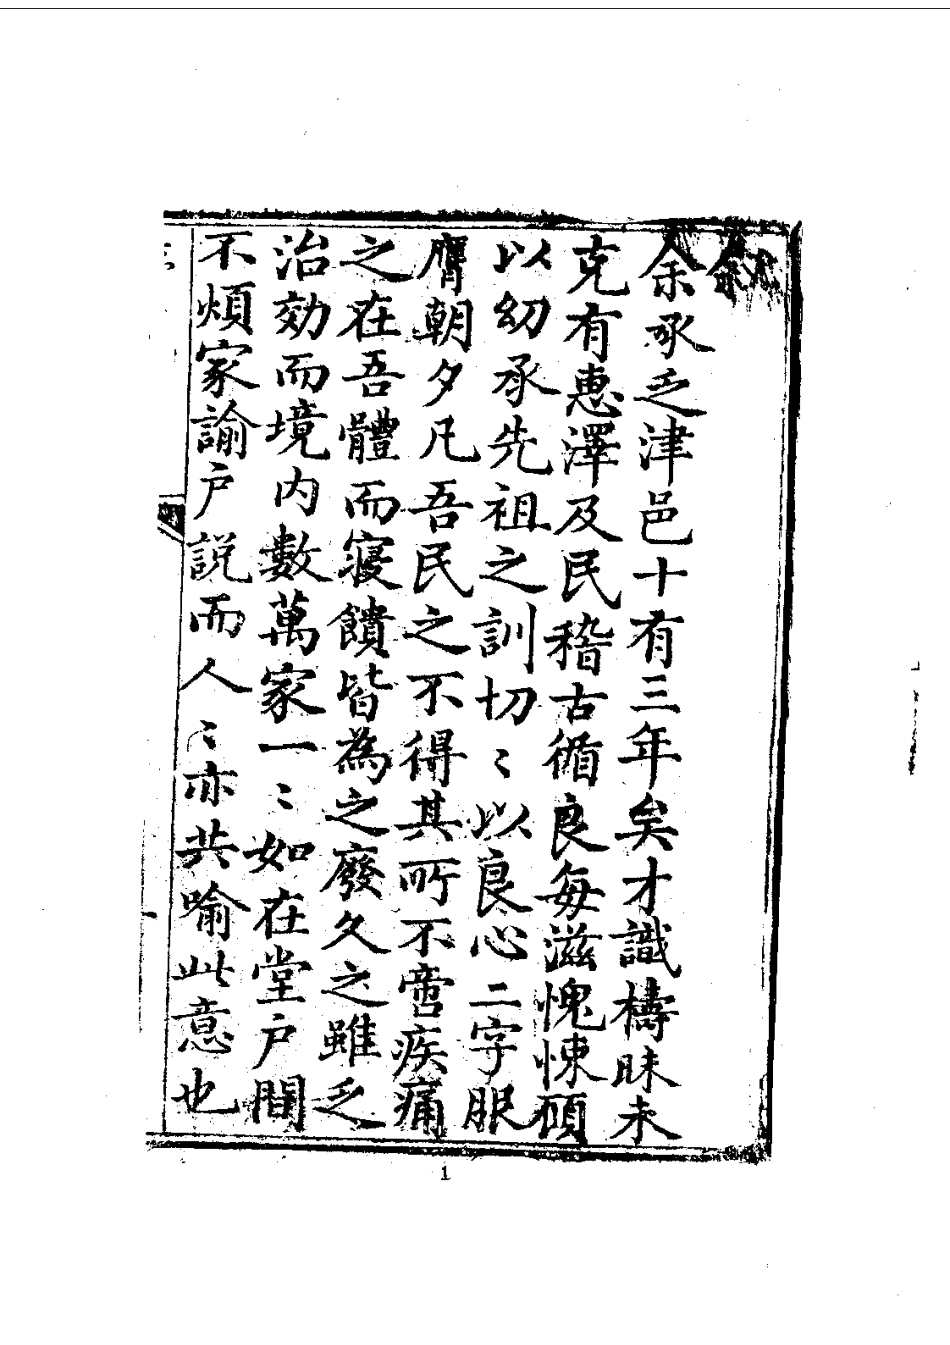 余承乏津邑十有三年矣才識檮昧未
克有惠澤及民稽古循良每滋愧悚碩
以幼承先祖之訓切〻以良心二字服
膺朝夕凡吾民之不得其所不啻疾痛
之在吾體而寢饋皆為之廢久之雖乏
治効而境内數萬家一〻如在堂戶間
不煩家諭户説而人〻亦共喻此意也
1